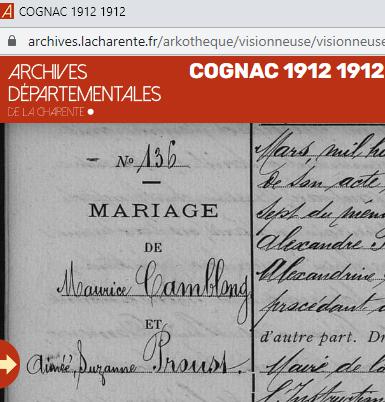 COGNAC 1912 1912
archives.lacharente.fr/arkotheque/visionneuse/visionneuse
ARCHIVES
DÉPARTEMENTALES
DE LA CHARENTE
COGNAC 1912 1912
– No 136
MARIAGE
DE
Maurice Camblong
ET
Aimée, Suzanne Proust.
Mars, mil hu
de son acte
sept du même
Alexandre
Alexandrine
précédant
d'autre part. Dr
Maire de la
l'Instruction